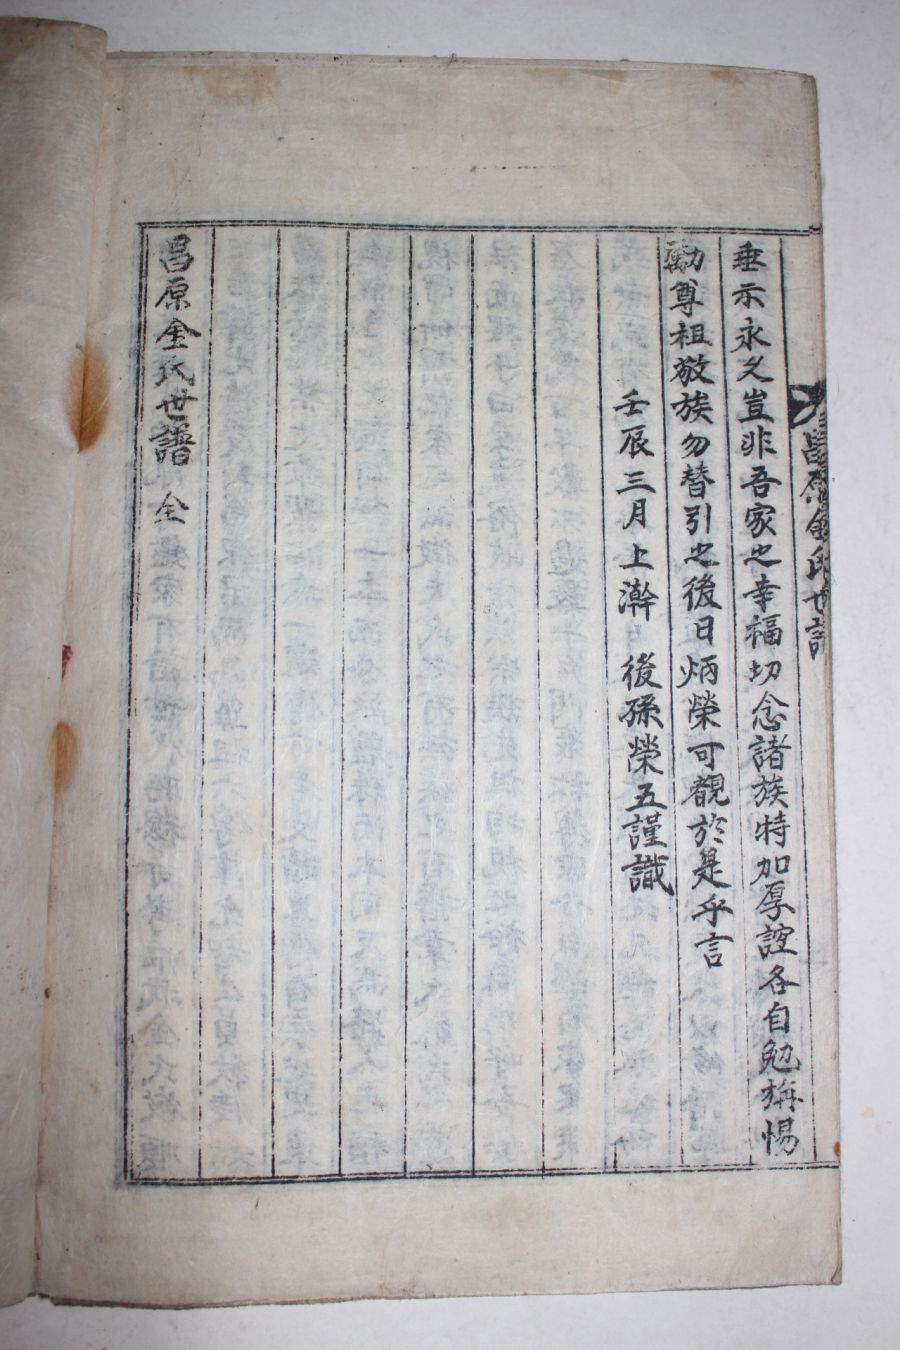 垂示永久豈非吾家之幸福切念諸族特加厚誼各自勉旃惕
勵尊祖敬族勿替引之後日炳榮可覩於是乎言
壬辰三月上澣 後孫榮五謹識
昌原金氏世譜 全
昌原金氏世譜